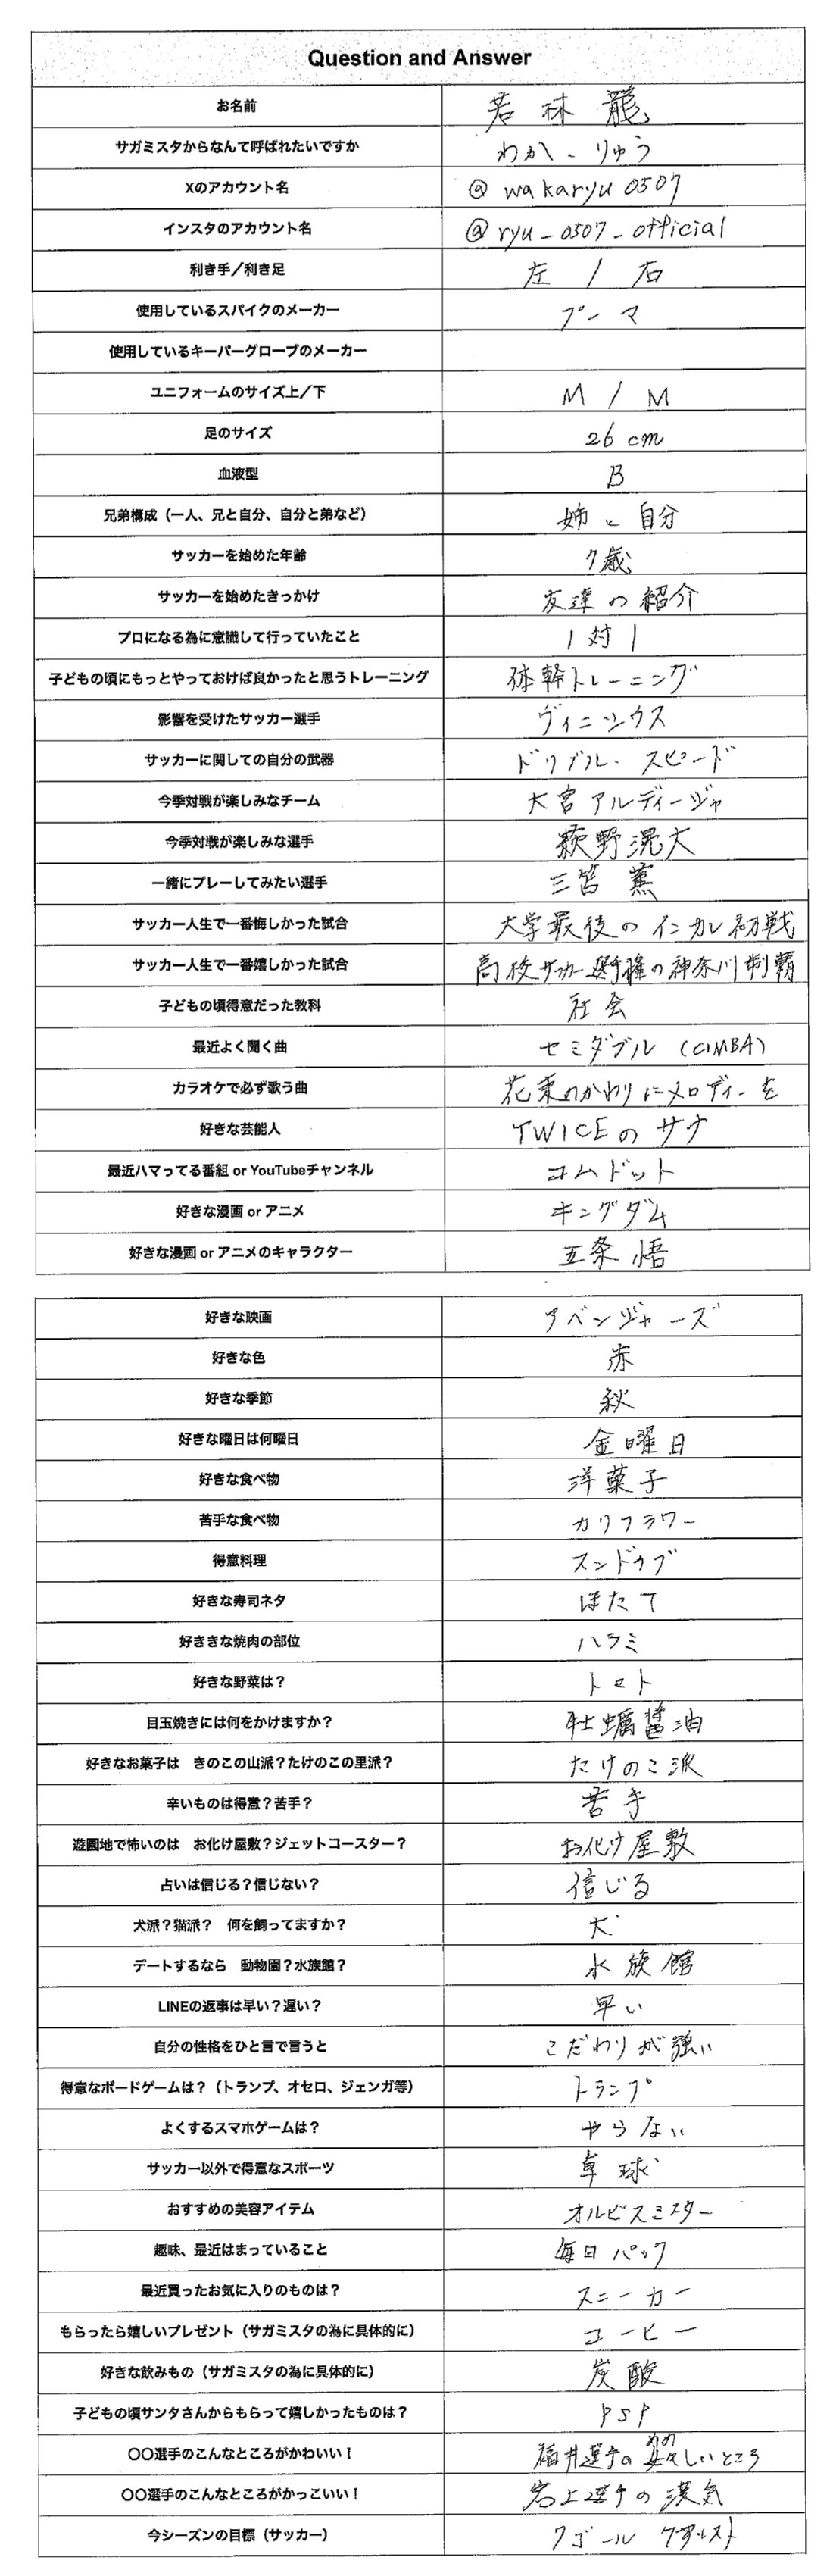 Question and Answer
お名前 若林 龍
サガミスタからなんて呼ばれたいですか わか、りゅう
Xのアカウント名 @wakaryu0507
インスタのアカウント名 @ryu_0507_official
利き手/利き足 左 / 右
使用しているスパイクのメーカー プーマ
使用しているキーパーグローブのメーカー
ユニフォームのサイズ上/下 M / M
足のサイズ 26cm
血液型 B
兄弟構成(一人、兄と自分、自分と弟など) 姉と自分
サッカーを始めた年齢 7歳
サッカーを始めたきっかけ 友達の紹介
プロになる為に意識して行っていたこと 1対1
子どもの頃にもっとやっておけば良かったと思うトレーニング 体幹トレーニング
影響を受けたサッカー選手 ヴィニシウス
サッカーに関しての自分の武器 ドリブル・スピード
今季対戦が楽しみなチーム 大宮アルディージャ
今季対戦が楽しみな選手 萩野滉大
一緒にプレーしてみたい選手 三笘 薫
サッカー人生で一番悔しかった試合 大学最後のインカレ初戦
サッカー人生で一番嬉しかった試合 高校サッカー選手権の神奈川制覇
子どもの頃得意だった教科 社会
最近よく聞く曲 セミダブル (CIMBA)
カラオケで必ず歌う曲 花束のかわりにメロディーを
好きな芸能人 TWICEのサナ
最近ハマってる番組 or YouTubeチャンネル コムドット
好きな漫画 or アニメ キングダム
好きな漫画 or アニメのキャラクター 五条 悟
好きな映画 アベンジャーズ
好きな色 赤
好きな季節 秋
好きな曜日は何曜日 金曜日
好きな食べ物 洋菓子
苦手な食べ物 カリフラワー
得意料理 スンドゥブ
好きな寿司ネタ ほたて
好ききな焼肉の部位 ハラミ
好きな野菜は? トマト
目玉焼きには何をかけますか? 牡蠣醤油
好きなお菓子は きのこの山派?たけのこの里派? たけのこ派
辛いものは得意?苦手? 苦手
遊園地で怖いのは お化け屋敷?ジェットコースター? お化け屋敷
占いは信じる?信じない? 信じる
犬派?猫派? 何を飼ってますか? 犬
デートするなら 動物園?水族館? 水族館
LINEの返事は早い?遅い? 早い
自分の性格をひと言で言うと こだわりが強い
得意なボードゲームは?(トランプ、オセロ、ジェンガ等) トランプ
よくするスマホゲームは? やらない
サッカー以外で得意なスポーツ 卓球
おすすめの美容アイテム オルビスミスター
趣味、最近はまっていること 毎日パック
最近買ったお気に入りのものは? スニーカー
もらったら嬉しいプレゼント(サガミスタの為に具体的に) コーヒー
好きな飲みもの(サガミスタの為に具体的に) 炭酸
子どもの頃サンタさんからもらって嬉しかったものは? PSP
〇〇選手のこんなところがかわいい! 福井選手の女々しいところ
〇〇選手のこんなところがかっこいい! 岩上選手の漢気
今シーズンの目標(サッカー) 7ゴール 7アシスト